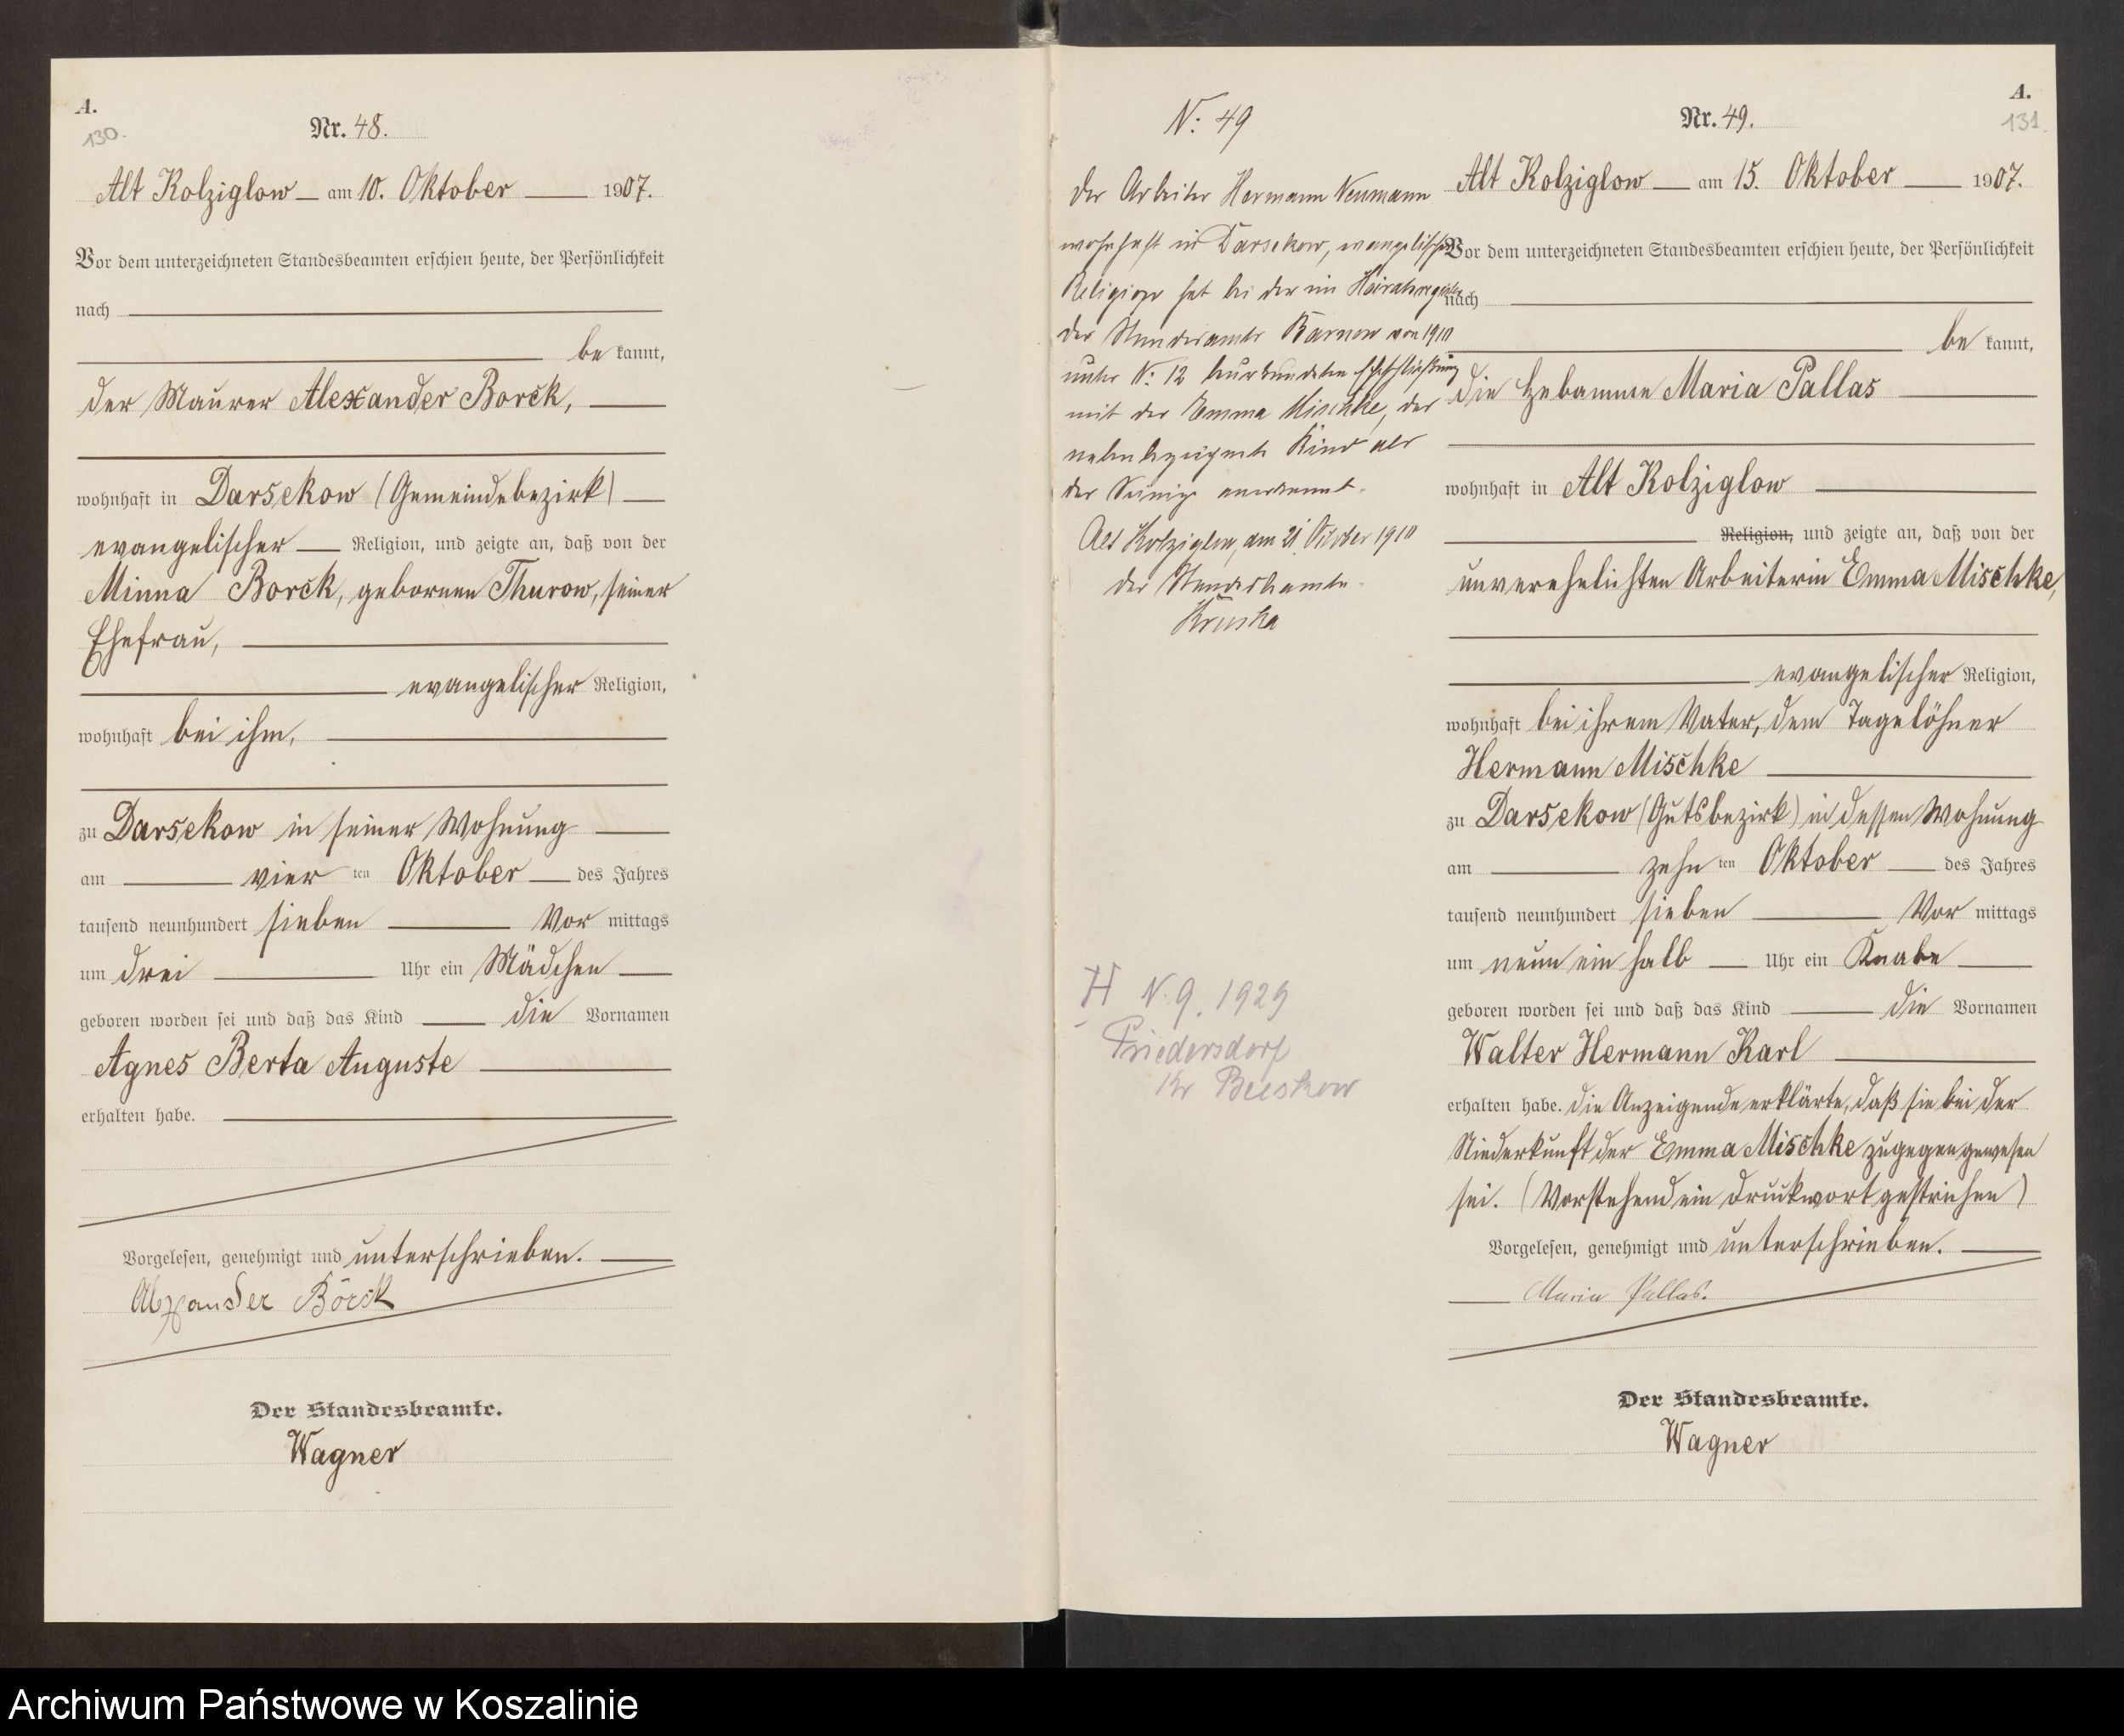 A.
130.
Nr. 48.
Alt Kolziglow am 10. Oktober 1907.
Vor dem unterzeichneten Standesbeamten erschien heute, der Persönlichkeit
nach
be kannt,
der Maurer Alexander Borck,
wohnhaft in Darsekow (Gemeindebezirk)
evangelischer Religion, und zeigte an, daß von der
Minna Borck, gebornen Thurow, seiner
Ehefrau,
evangelischer Religion,
wohnhaft bei ihm,
zu Darsekow in seiner Wohnung
am vier ten Oktober des Jahres
tausend neunhundert sieben Vor mittags
um drei Uhr ein Mädchen
geboren worden sei und daß das Kind die Vornamen
Agnes Berta Auguste
erhalten habe.
Vorgelesen, genehmigt und unterschrieben.
Alexander Börck
Der Standesbeamte.
Wagner
N: 49
Der Arbeiter Hermann Neumann
wohnhaft in Darsekow, evangelischer
Religion hat bei der im Heiratsregister
des Standesamts Barnow von 1910
unter N: 12 beurkundeten Eheschließung
mit der Emma Mischke, das
nebenbezeichnete Kind als
das Seinige anerkannt.
Alt Kolziglow, am 21. Oktober 1910
Der Standesbeamte
Kruska
H N. 9. 1929
Friedersdorf
Kr Beeskow
A.
131.
Nr. 49.
Alt Kolziglow am 15. Oktober 1907.
Vor dem unterzeichneten Standesbeamten erschien heute, der Persönlichkeit
nach
be kannt,
die Hebamme Maria Pallas
wohnhaft in Alt Kolziglow
Religion, und zeigte an, daß von der
unverehelichten Arbeiterin Emma Mischke,
evangelischer Religion,
wohnhaft bei ihrem Vater, dem Tagelöhner
Hermann Mischke
zu Darsekow (Gutsbezirk) in dessen Wohnung
am zehn ten Oktober des Jahres
tausend neunhundert sieben Vor mittags
um neun ein halb Uhr ein Knabe
geboren worden sei und daß das Kind die Vornamen
Walter Hermann Karl
erhalten habe. Die Anzeigende erklärte, daß sie bei der
Niederkunft der Emma Mischke zugegen gewesen
sei. (Vorstehend ein Druckwort gestrichen)
Vorgelesen, genehmigt und unterschrieben.
Maria Pallas.
Der Standesbeamte.
Wagner
Archiwum Państwowe w Koszalinie